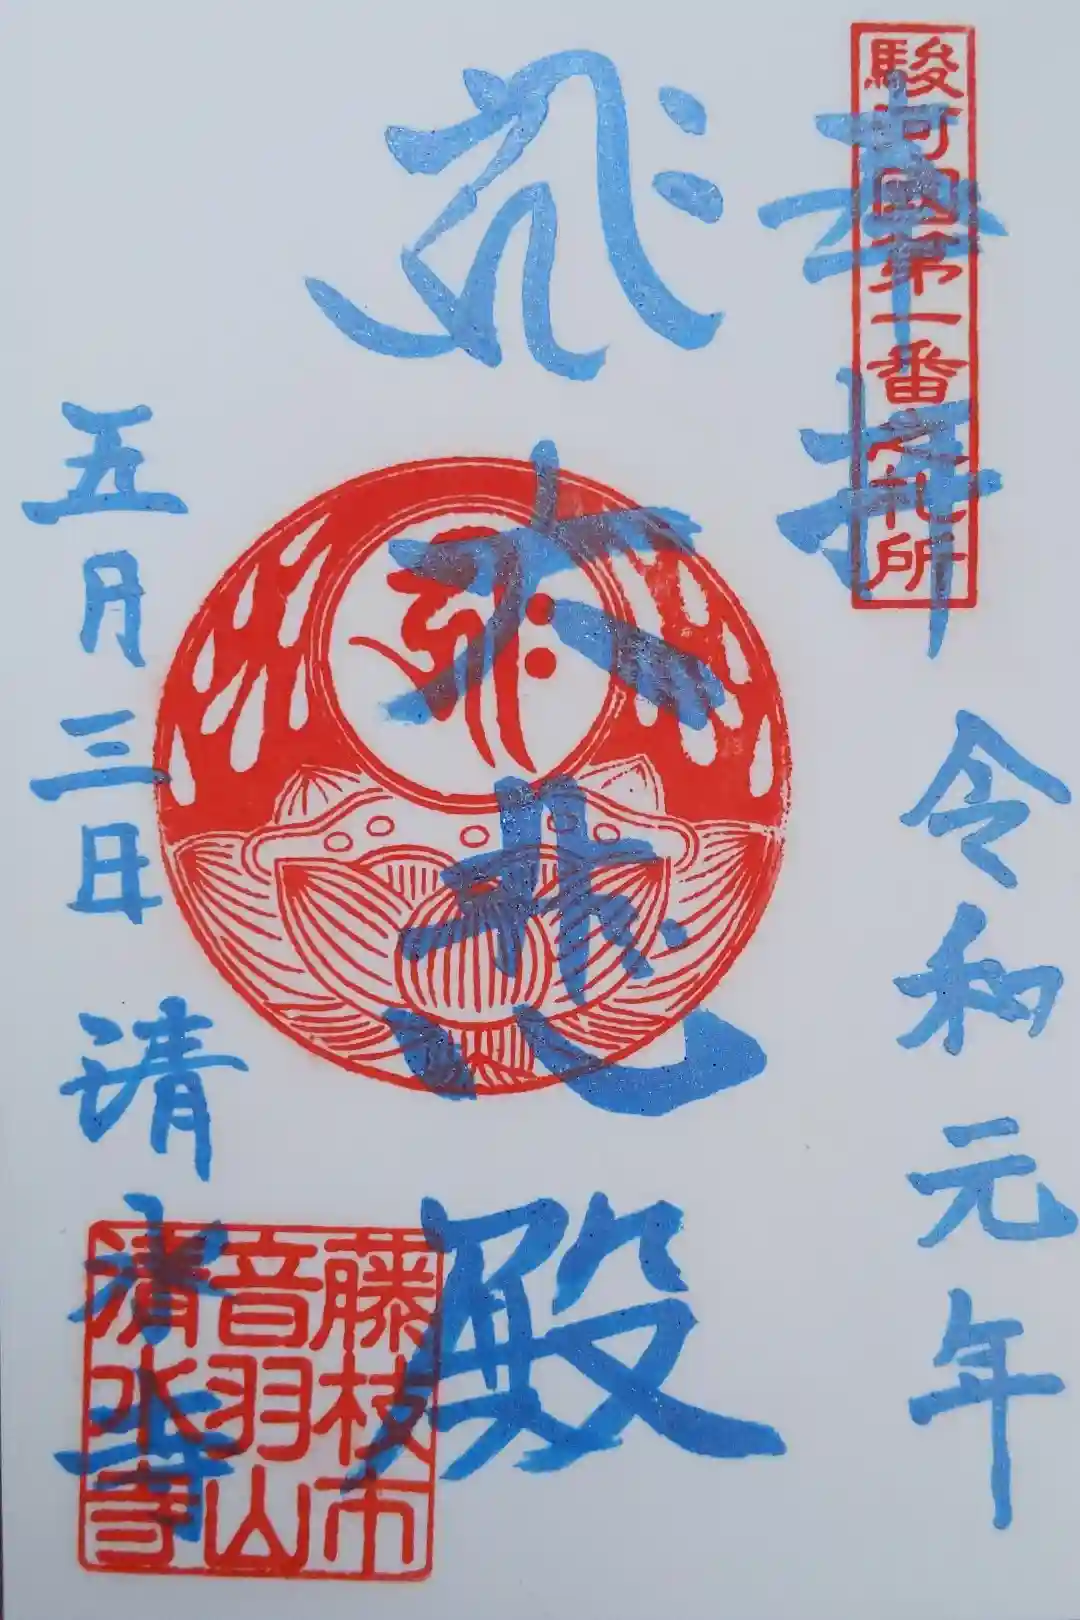 駿河国第一番之札所
奉拝
令和元年
大悲殿
五月三日
清水寺
藤枝市
音羽山
清水寺